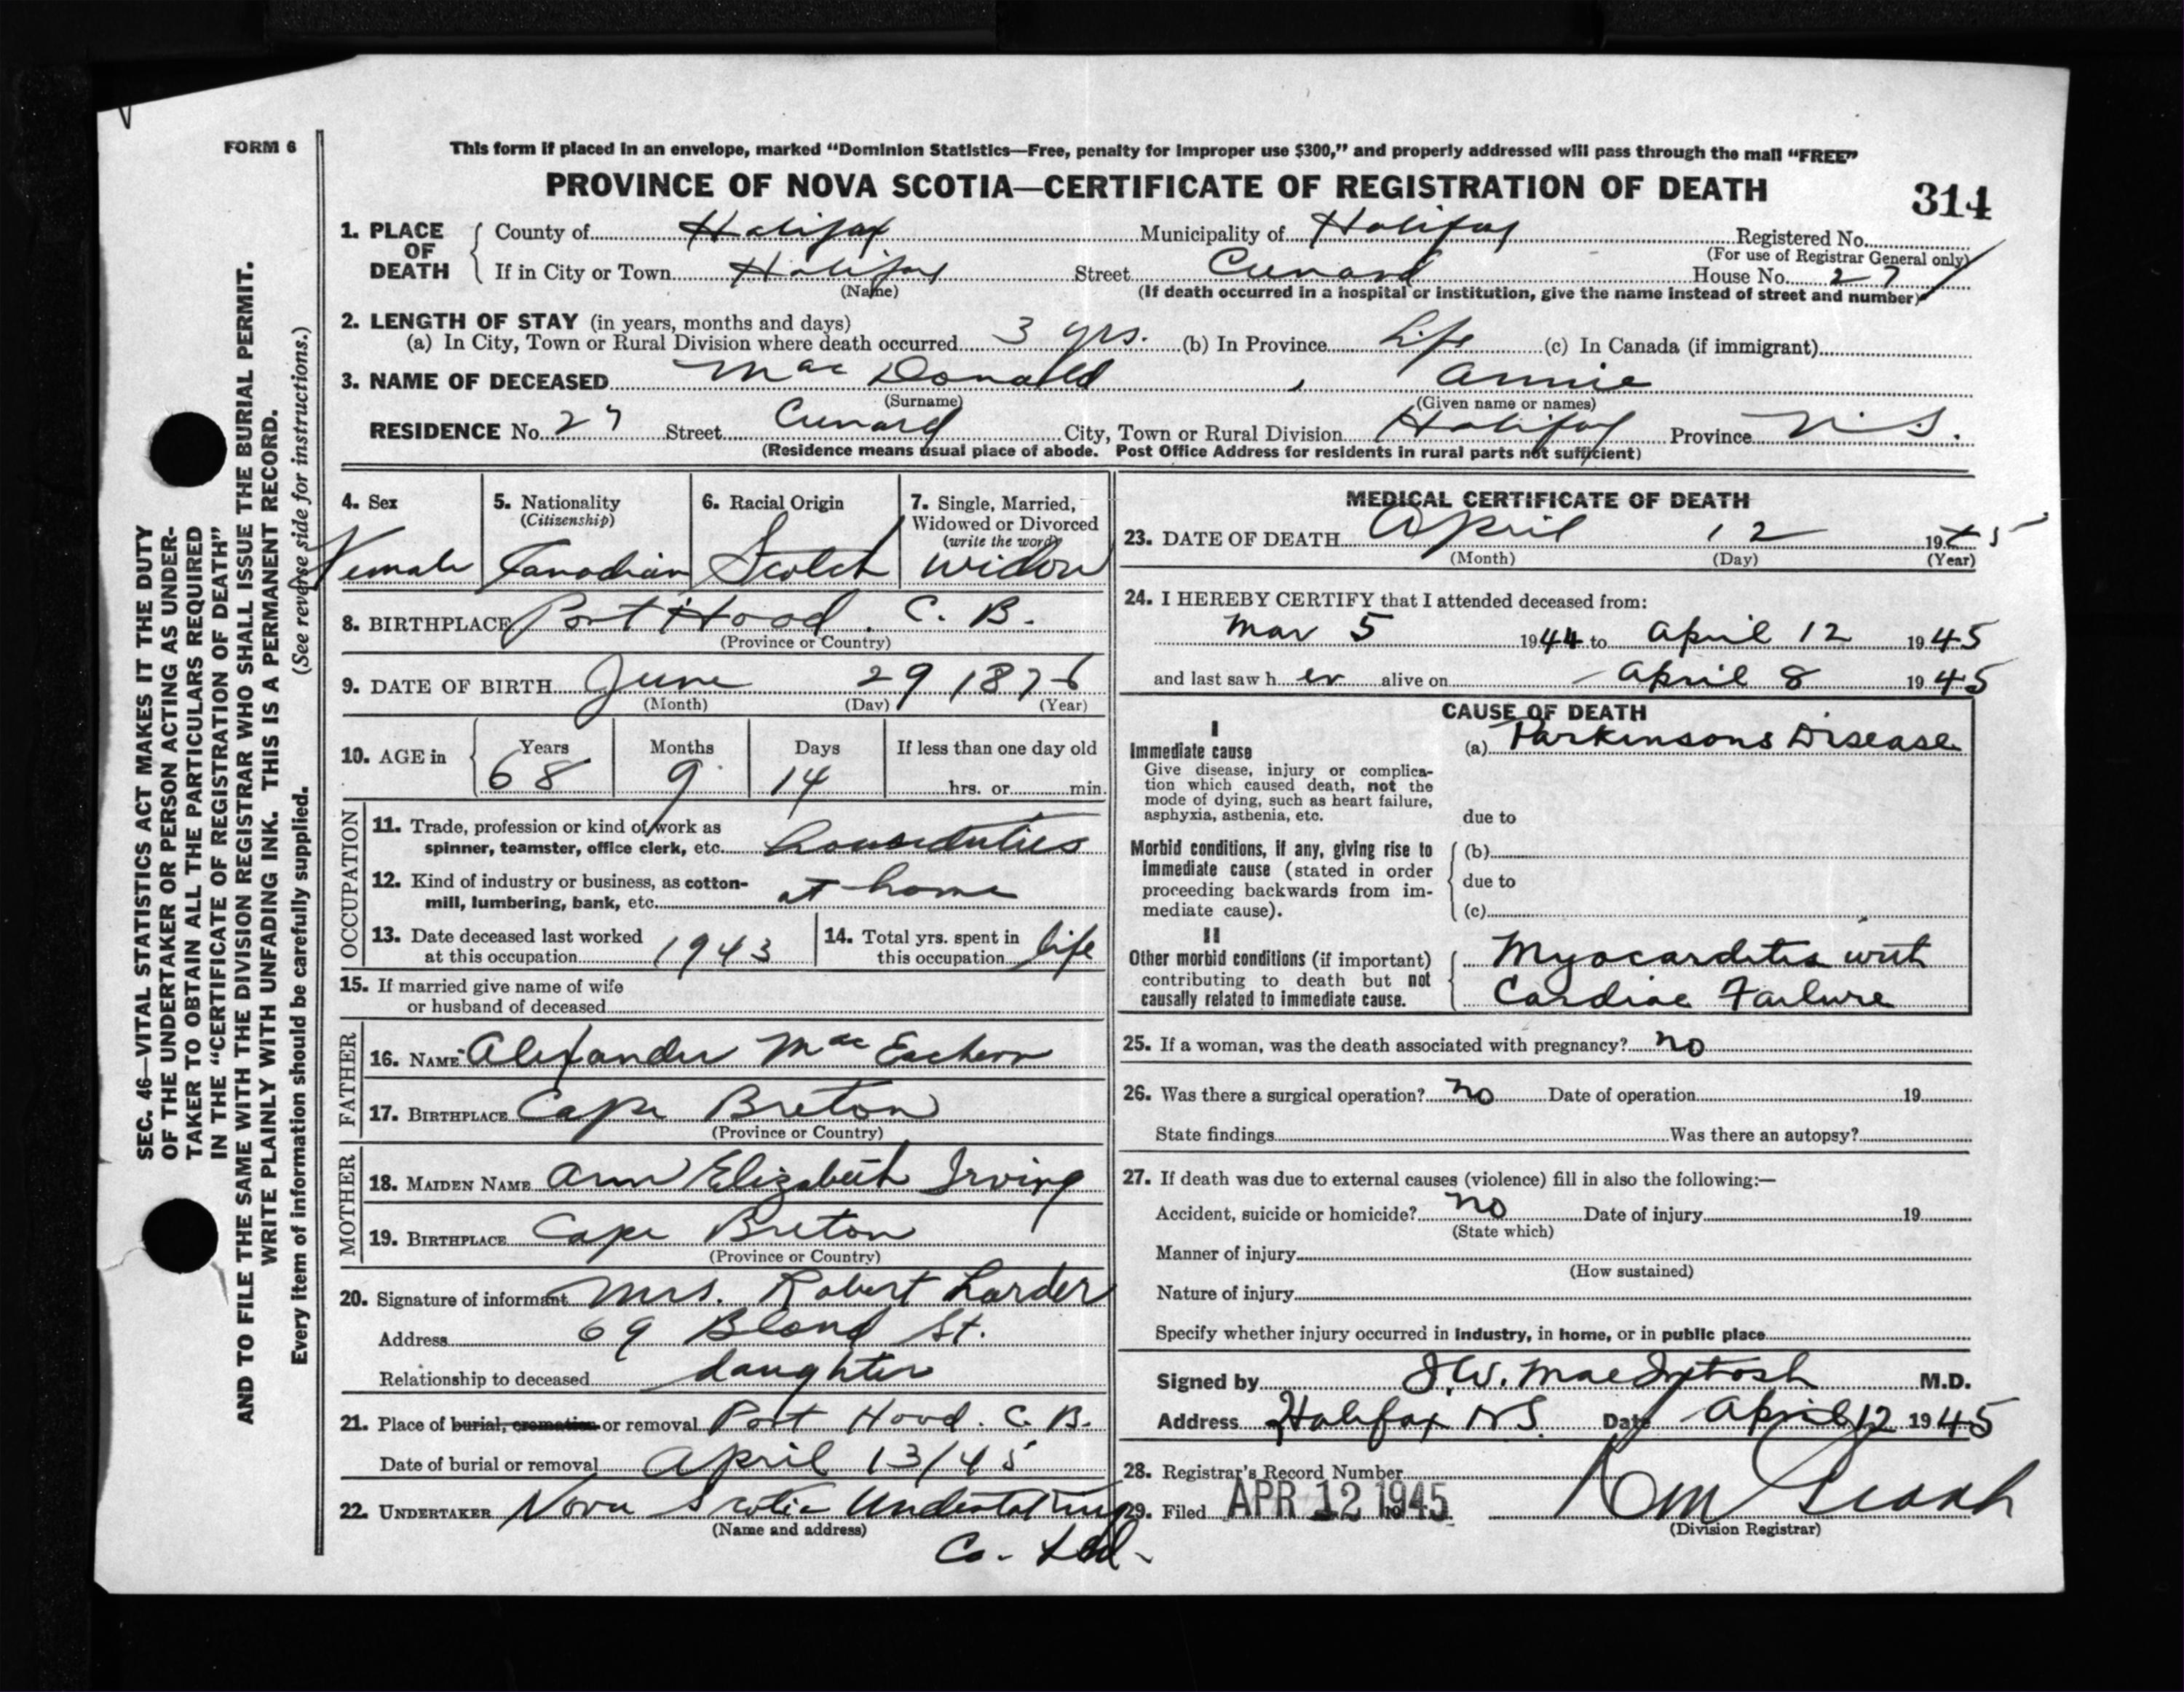 FORM 6
This form if placed in an envelope, marked “Dominion Statistics—Free, penalty for improper use $300,” and properly addressed will pass through the mail “FREE”
PROVINCE OF NOVA SCOTIA—CERTIFICATE OF REGISTRATION OF DEATH
314
1. PLACE OF DEATH { County of Halifax Municipality of Halifax Registered No.
(For use of Registrar General only)
If in City or Town Halifax Street Cunard House No. 27
(Name) (If death occurred in a hospital or institution, give the name instead of street and number)
2. LENGTH OF STAY (in years, months and days)
(a) In City, Town or Rural Division where death occurred 3 yrs. (b) In Province Life (c) In Canada (if immigrant)
3. NAME OF DECEASED Mac Donald , Annie
(Surname) (Given name or names)
RESIDENCE No. 27 Street Cunard City, Town or Rural Division Halifax Province N.S.
(Residence means usual place of abode. Post Office Address for residents in rural parts not sufficient)
4. Sex 5. Nationality 6. Racial Origin 7. Single, Married,
(Citizenship) Widowed or Divorced
(write the word)
Female Canadian Scotch Widow
8. BIRTHPLACE Port Hood. C. B.
(Province or Country)
9. DATE OF BIRTH June 29 1876
(Month) (Day) (Year)
10. AGE in { Years Months Days If less than one day old
68 9 14 hrs. or min.
OCCUPATION
11. Trade, profession or kind of work as
spinner, teamster, office clerk, etc. houseduties
12. Kind of industry or business, as cotton-
mill, lumbering, bank, etc. at home
13. Date deceased last worked
at this occupation 1943
14. Total yrs. spent in
this occupation life
15. If married give name of wife
or husband of deceased
FATHER
16. NAME Alexander Mac Eachern
17. BIRTHPLACE Cape Breton
(Province or Country)
MOTHER
18. MAIDEN NAME Ann Elizabeth Irving
19. BIRTHPLACE Cape Breton
(Province or Country)
20. Signature of informant Mrs. Robert Larder
Address 69 Bland St.
Relationship to deceased daughter
21. Place of burial, cremation or removal Port Hood. C. B.
Date of burial or removal April 13/45
22. UNDERTAKER Nova Scotia Undertaking
(Name and address)
Co. Ltd.
MEDICAL CERTIFICATE OF DEATH
23. DATE OF DEATH April 12 1945
(Month) (Day) (Year)
24. I HEREBY CERTIFY that I attended deceased from:
Mar 5 1944 to April 12 1945
and last saw h er alive on April 8 1945
CAUSE OF DEATH
I
Immediate cause (a) Parkinsons Disease
Give disease, injury or complica-
tion which caused death, not the
mode of dying, such as heart failure,
asphyxia, asthenia, etc. due to
Morbid conditions, if any, giving rise to (b)
immediate cause (stated in order
proceeding backwards from im- due to
mediate cause). (c)
II
Other morbid conditions (if important) Myocarditis with
contributing to death but not
causally related to immediate cause. Cardiac Failure
25. If a woman, was the death associated with pregnancy? no
26. Was there a surgical operation? no Date of operation 19
State findings Was there an autopsy?
27. If death was due to external causes (violence) fill in also the following:—
Accident, suicide or homicide? no Date of injury 19
(State which)
Manner of injury
(How sustained)
Nature of injury
Specify whether injury occurred in industry, in home, or in public place
Signed by J.W. MacIntosh M.D.
Address Halifax NS. Date April 12 1945
28. Registrar's Record Number
29. Filed APR 12 1945
(Division Registrar)
SEC. 46—VITAL STATISTICS ACT MAKES IT THE DUTY
OF THE UNDERTAKER OR PERSON ACTING AS UNDER-
TAKER TO OBTAIN ALL THE PARTICULARS REQUIRED
IN THE “CERTIFICATE OF REGISTRATION OF DEATH”
AND TO FILE THE SAME WITH THE DIVISION REGISTRAR WHO SHALL ISSUE THE BURIAL PERMIT.
WRITE PLAINLY WITH UNFADING INK. THIS IS A PERMANENT RECORD.
Every item of information should be carefully supplied. (See reverse side for instructions.)